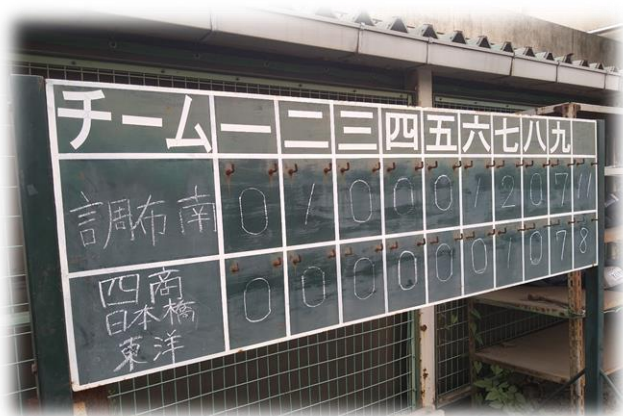 チーム 一 二 三 四 五 六 七 八 九
調布南 0 1 0 0 0 1 2 0 7 11
四商
日本橋 0 0 0 0 0 0 1 0 7 8
東洋